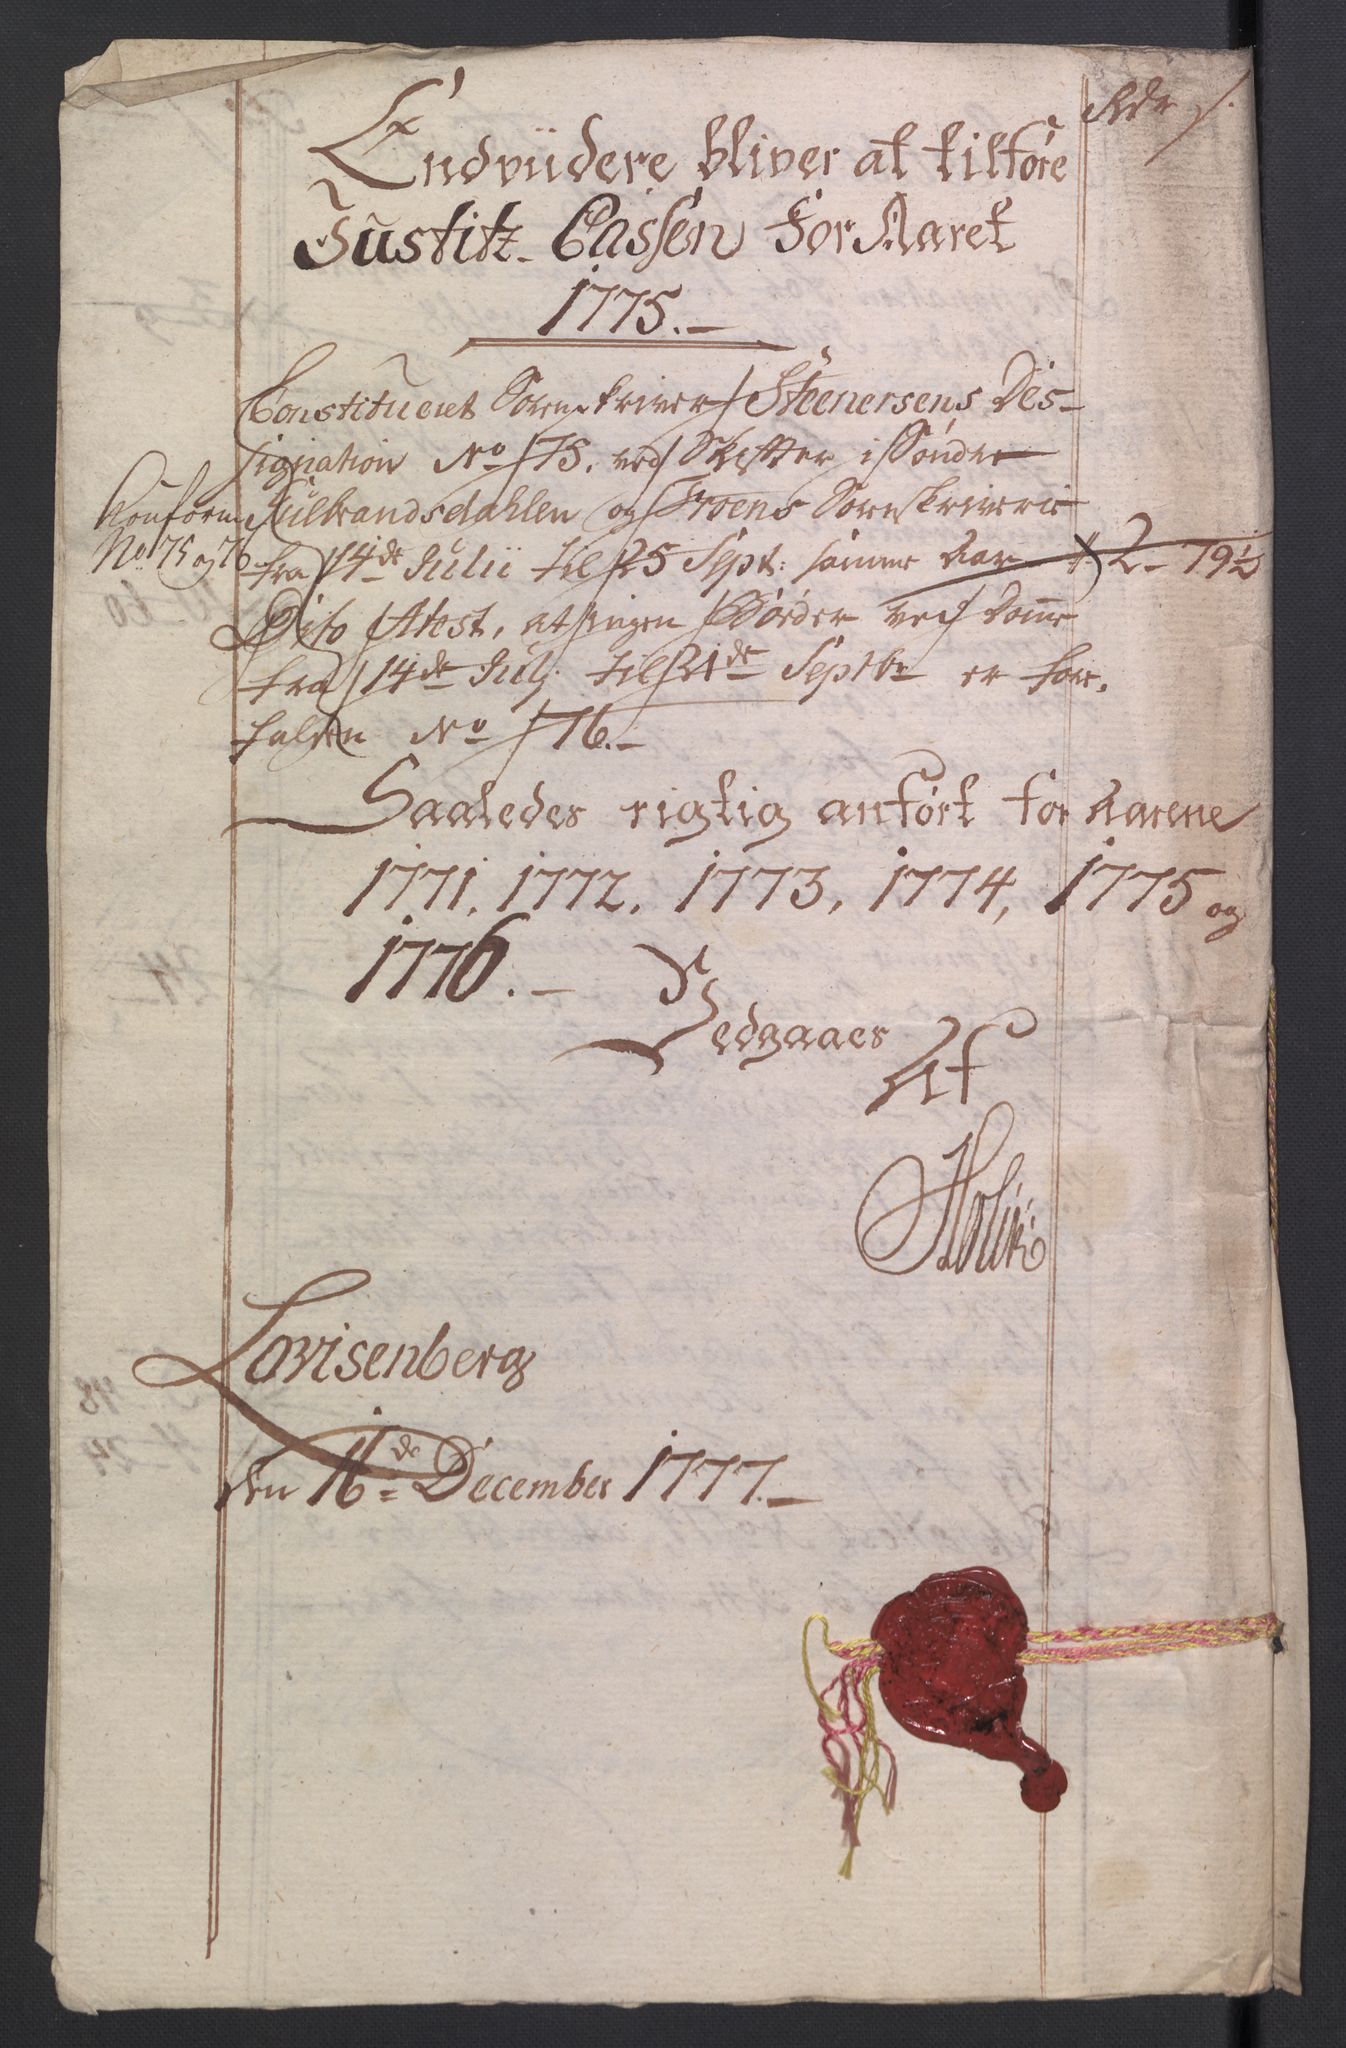 Rdr
Endvüdere bliver at tilføre
Justitz Cassen for Aaret
1775.
Constitueret Sorenskriver Steenersens Des-
signation No 75. ved Skifter i Sønder
Konform
No 75 og 76
Gulbrandsdahlen og Froens Sorenskriverie
fra 14de Julii til 25 Sept: samme Aar 2 - 79½
Dito Attest, at ingen Bøeder ved Domme
fra 14de Julj til 21de Septbr er for-
falden No 76.
Saaledes rigtig anført for Aarene
1771, 1772, 1773, 1774, 1775 og
1776.
Vedgaaes
Af
Lovisenberg
den 16de December 1777.